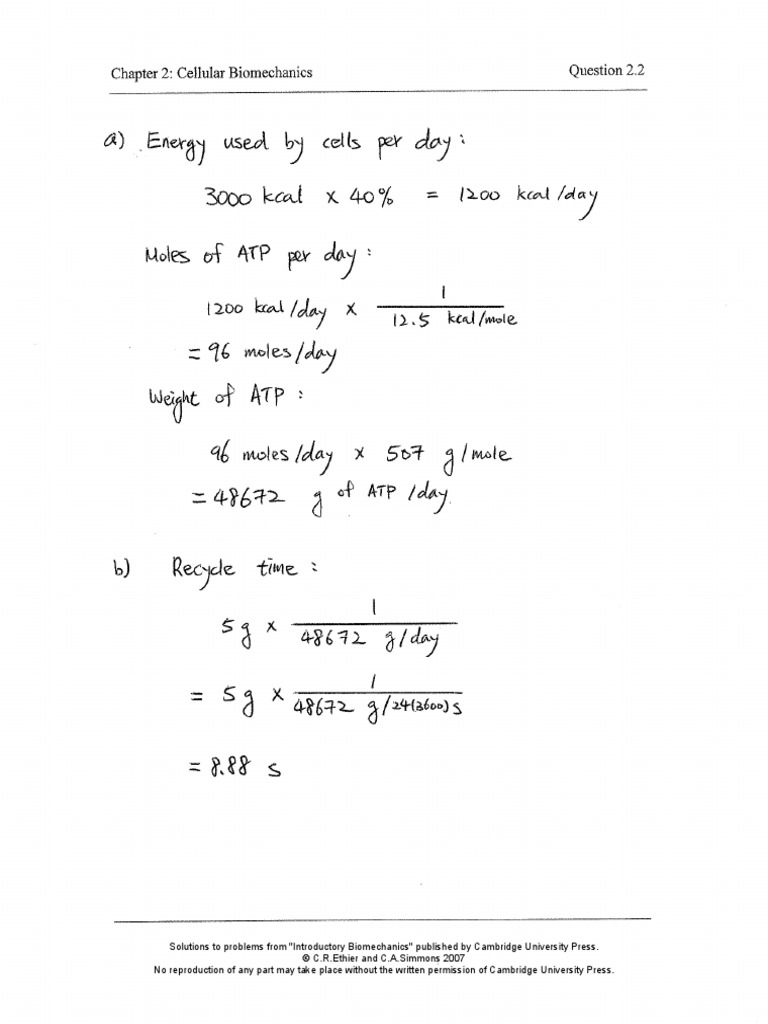 Chapter 2: Cellular Biomechanics Question 2.2
a) Energy used by cells per day:
3000 kcal x 40% = 1200 kcal/day
Moles of ATP per day:
1200 kcal/day x 1 / 12.5 kcal/mole
= 96 moles/day
Weight of ATP:
96 moles/day x 507 g/mole
= 48672 g of ATP/day.
b) Recycle time:
5g x 1 / 48672 g/day
= 5g x 1 / 48672 g/24(3600)s
= 8.88 s
Solutions to problems from "Introductory Biomechanics" published by Cambridge University Press.
© C.R.Ethier and C.A.Simmons 2007
No reproduction of any part may take place without the written permission of Cambridge University Press.